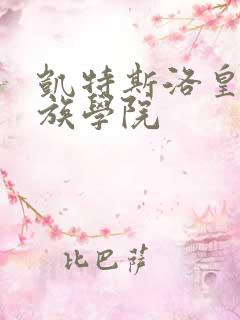 凱特斯洛皇
族學院
比巴薩